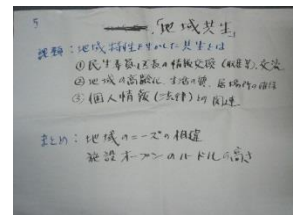 5
「地域共生」
課題：地域特性を生かした共生とは
①民生委員と区長の情報交換（敬老会）、交流
②地域の高齢化、生活の質、居場所の確保
③個人情報（法律）の関連
まとめ：地域のニーズの相違
施設オープンのハードルの高さ